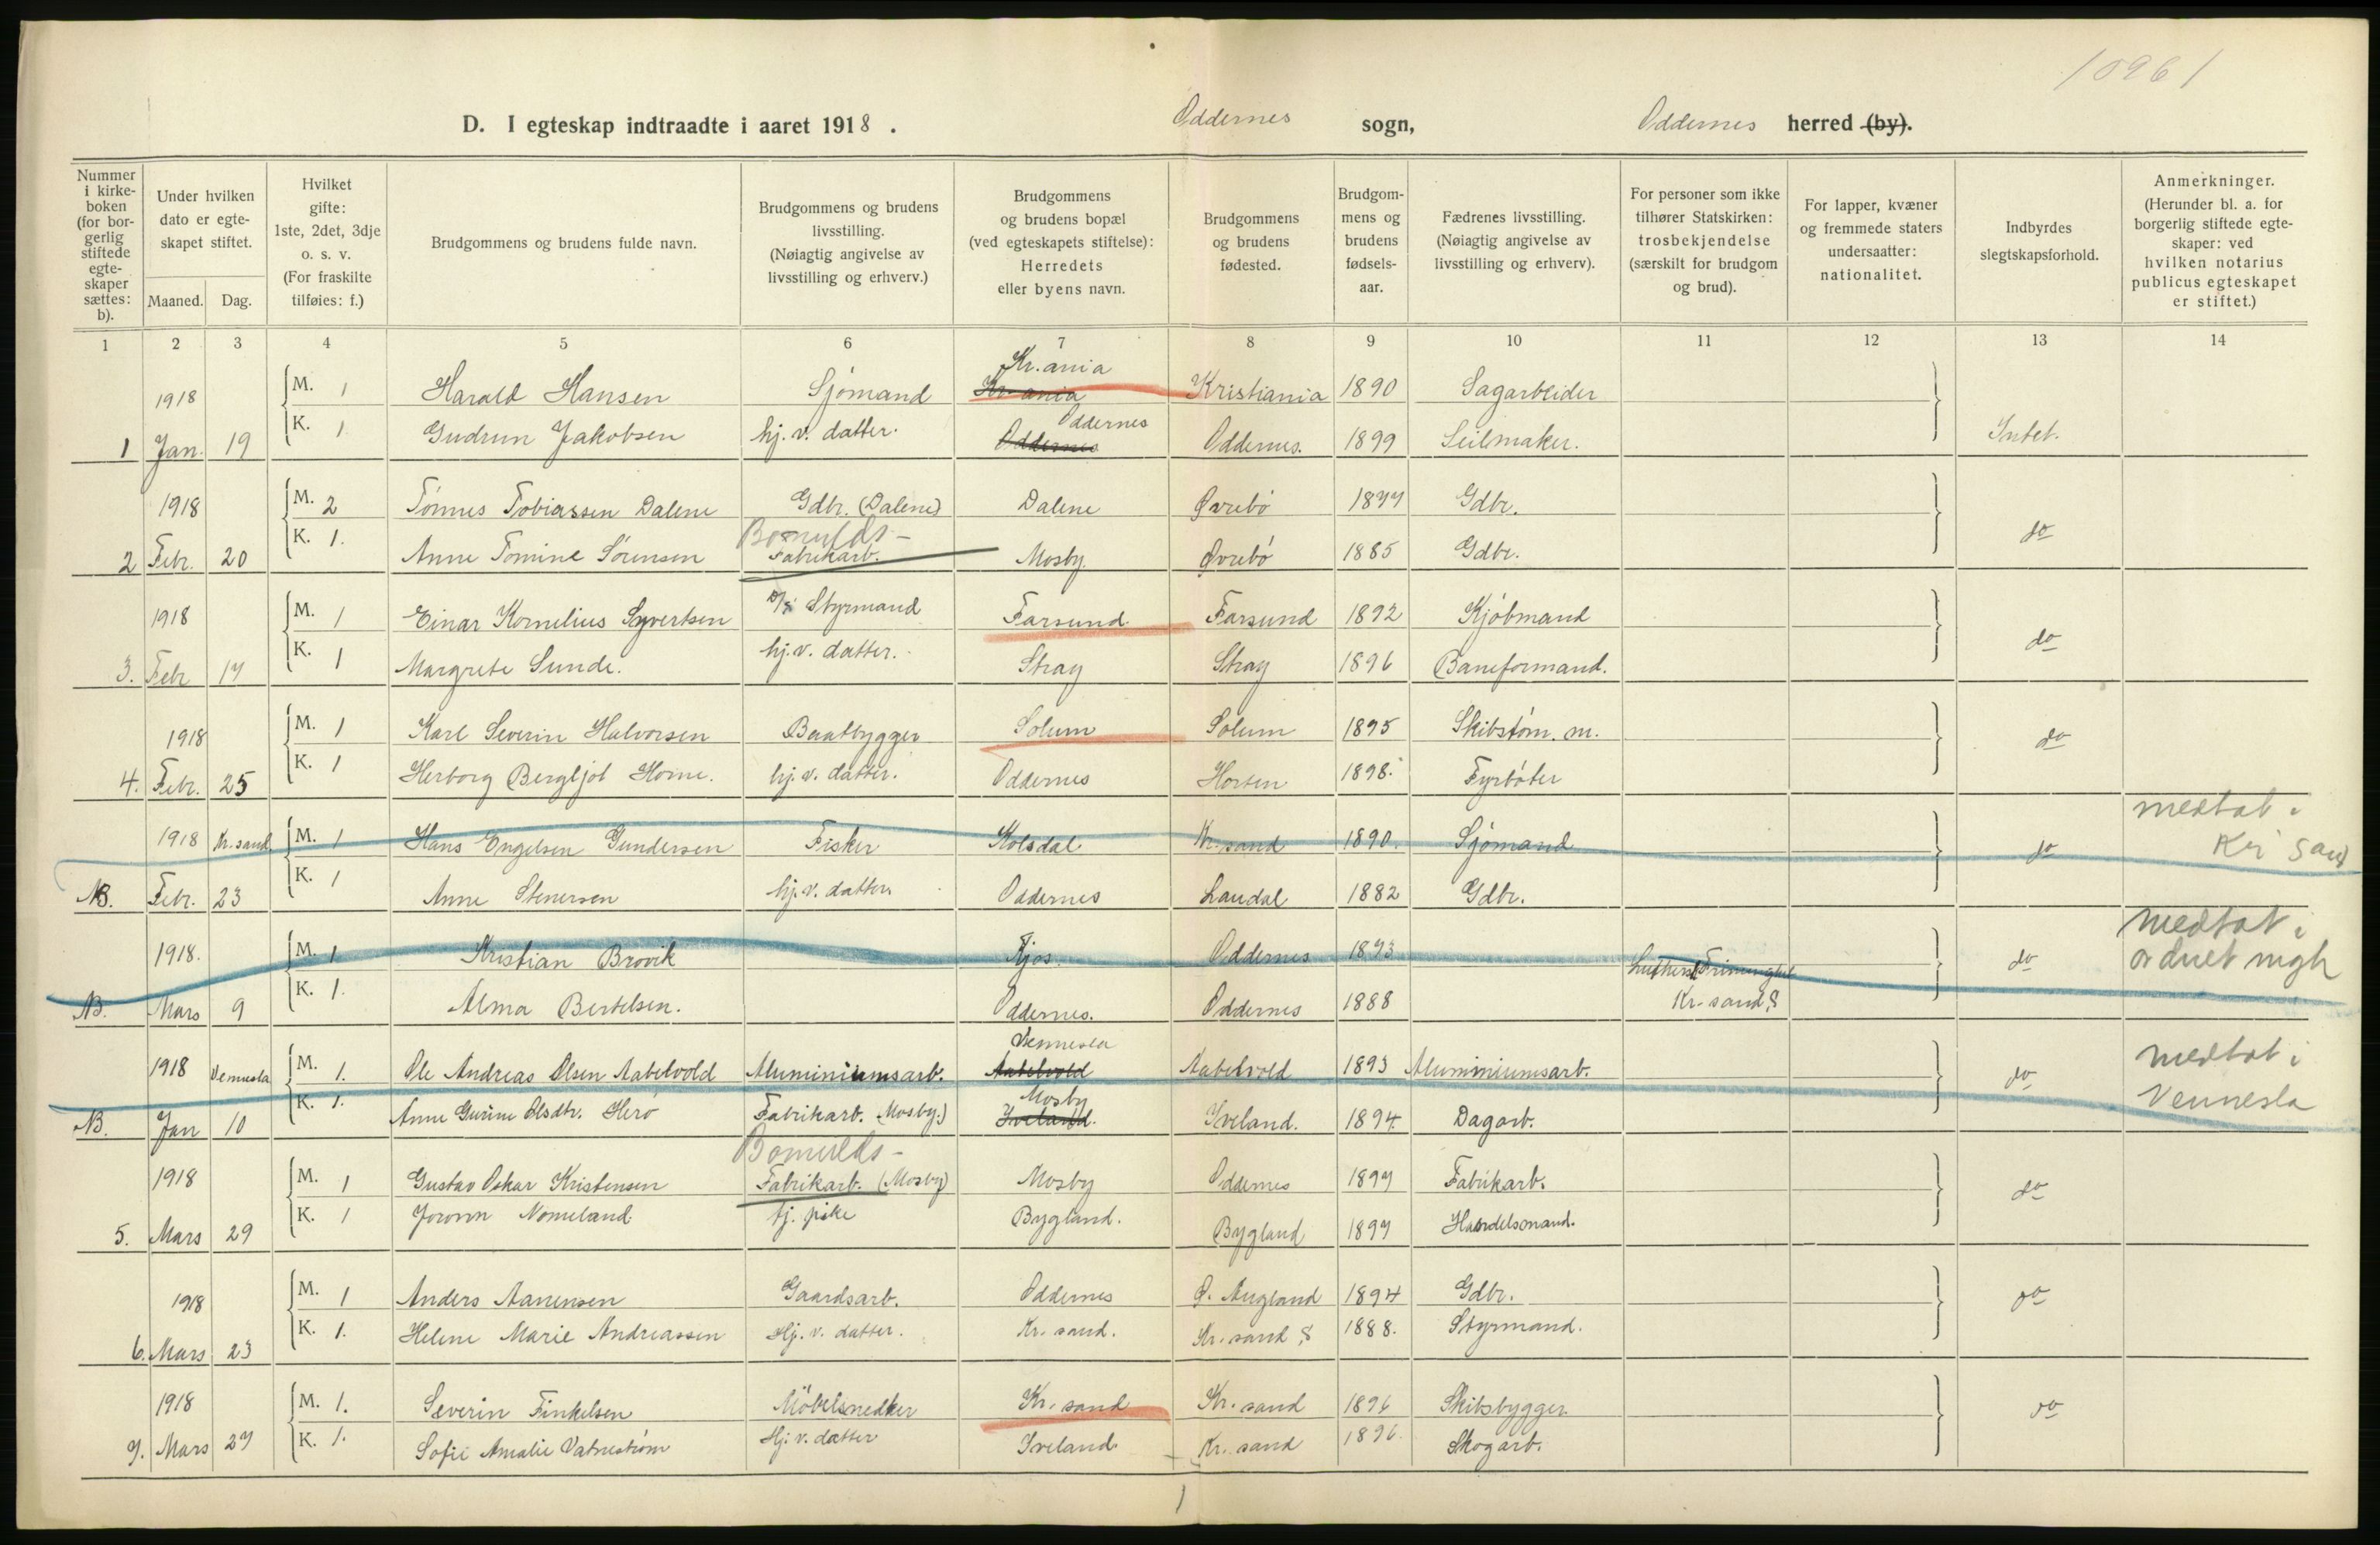 10961
D. I egteskap indtraadte i aaret 1918. Oddernes sogn, Oddernes herred (by).
Nummer i kirkeboken (for borgerlig stiftede egteskaper sættes: b).
Under hvilken dato er egteskapet stiftet.
Maaned. Dag.
Hvilket gifte: 1ste, 2det, 3dje o. s. v. (For fraskilte tilføies: f.)
Brudgommens og brudens fulde navn.
Brudgommens og brudens livsstilling. (Nøiagtig angivelse av livsstilling og erhverv.)
Brudgommens og brudens bopæl (ved egteskapets stiftelse): Herredets eller byens navn.
Brudgommens og brudens fødested.
Brudgommens og brudens fødselsaar.
Fædrenes livsstilling. (Nøiagtig angivelse av livsstilling og erhverv).
For personer som ikke tilhører Statskirken: trosbekjendelse (særskilt for brudgom og brud).
For lapper, kvæner og fremmede staters undersaatter: nationalitet.
Indbyrdes slegtskapsforhold.
Anmerkninger. (Herunder bl. a. for borgerlig stiftede egteskaper: ved hvilken notarius publicus egteskapet er stiftet.)
1 2 3 4 5 6 7 8 9 10 11 12 13 14
Kr.ania
1918 M. 1 Harald Hansen Sjømand Kr.ania Kristiania 1890 Sagarbeider
Oddernes
1 Jan. 19 K. 1 Gudrun Jakobsen hj. v. datter. Oddernes Oddernes. 1899 Seilmaker. Intet.
1918 M. 2 Tønnes Tobiassen Dalene Gdbr. (Dalene) Dalene Øvrebø 1877 Gdbr.
Bomulds-
2 Febr. 20 K. 1. Anne Tomine Sørensen Fabrikarb. Mosby Øvrebø 1885 Gdbr. do
1918 M. 1 Einar Kornelius Syvertsen Styrmand Farsund Farsund 1892 Kjøbmand
3. Febr 17 K. 1 Margrete Sunde. hj. v. datter. Stray Stray 1896 Baneformand. do
1918 M. 1 Karl Severin Halvorsen Baatbygger Solum Solum 1895 Skibstøm. m.
4. Febr. 25 K. 1 Herborg Bergljot Horne. hj. v. datter. Oddernes Horten 1898. Fyrbøter do
1918 Kr.sand M. 1 Hans Engelsen Gundersen Fisker Kolsdal Kr.sand 1890. Sjømand do medtat i Kr sand
NB. Febr. 23 K. 1 Anne Stenersen hj. v. datter. Oddernes Laudal 1882 Gdbr.
1918. M. 1 Kristian Brovik Fjos. Oddernes 1893 Luthersk Frimenighet do medtat i
NB. Mars 9 K. 1. Alma Bertelsen. Oddernes. Oddernes 1888 Kr. sand S
Vennesla
1918 Vennesla M. 1. Ole Andreas Olsen Aabelvold Aluminiumsarb. Aabelvold Aabelvold 1893 Aluminiumsarb. do medtat i Vennesla
Mosby
NB. Jan 10 K. 1. Anne Gurine Olsdtr. Herø Fabrikarb. Mosby.) Iveland. Iveland. 1894. Dagarb.
Bomulds-
1918 M. 1 Gustav Oskar Kristensen Fabrikarb. (Mosby) Mosby Oddernes 1897 Fabrikarb.
5. Mars 29 K. 1 Jorunn Nomeland tj. pike Bygland. Bygland 1897 Handelsmand. do
1918 M. 1 Anders Aanensen Gaardsarb. Oddernes Ø. Augland 1894 Gdbr.
6. Mars 23 K. 1. Helene Marie Andreassen Hj. v. datter. Kr. sand. Kr. sand S 1888. Styrmand. do
1918 M. 1. Severin Finkelsen Møbelsnedker Kr. sand Kr. sand 1896 Skibsbygger
7. Mars 27 K. 1. Sofie Amalie Vatnestrøm Hj. v. datter Iveland Kr. sand 1896. Skogarb. do